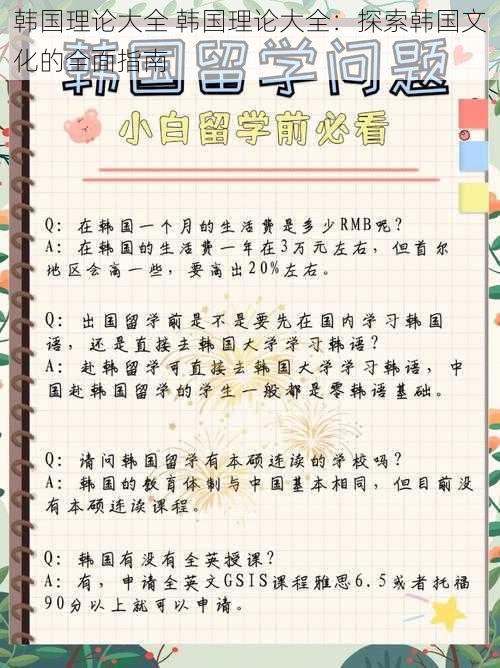 韩国理论大全 韩国理论大全：探索韩国文
化的全面指南
韩国留学问题
小白留学前必看
Q: 在韩国一个月的生活费是多少RMB呢？
A: 在韩国的生活费一年在3万元左右，但首尔
地区会高一些，要高出20%左右。
Q: 出国留学前是不是要先在国内学习韩国
语，还是直接去韩国大学学习韩语？
A: 赴韩留学可直接去韩国大学学习韩语，中
国赴韩国留学的学生一般都是零韩语基础。
Q: 请问韩国留学有本硕连读的学校吗？
A: 韩国的教育体制与中国基本相同，但目前没
有本硕连读课程。
Q: 韩国有没有全英授课？
A: 有，申请全英文GSIS课程雅思6.5或者托福
90分以上就可以申请。